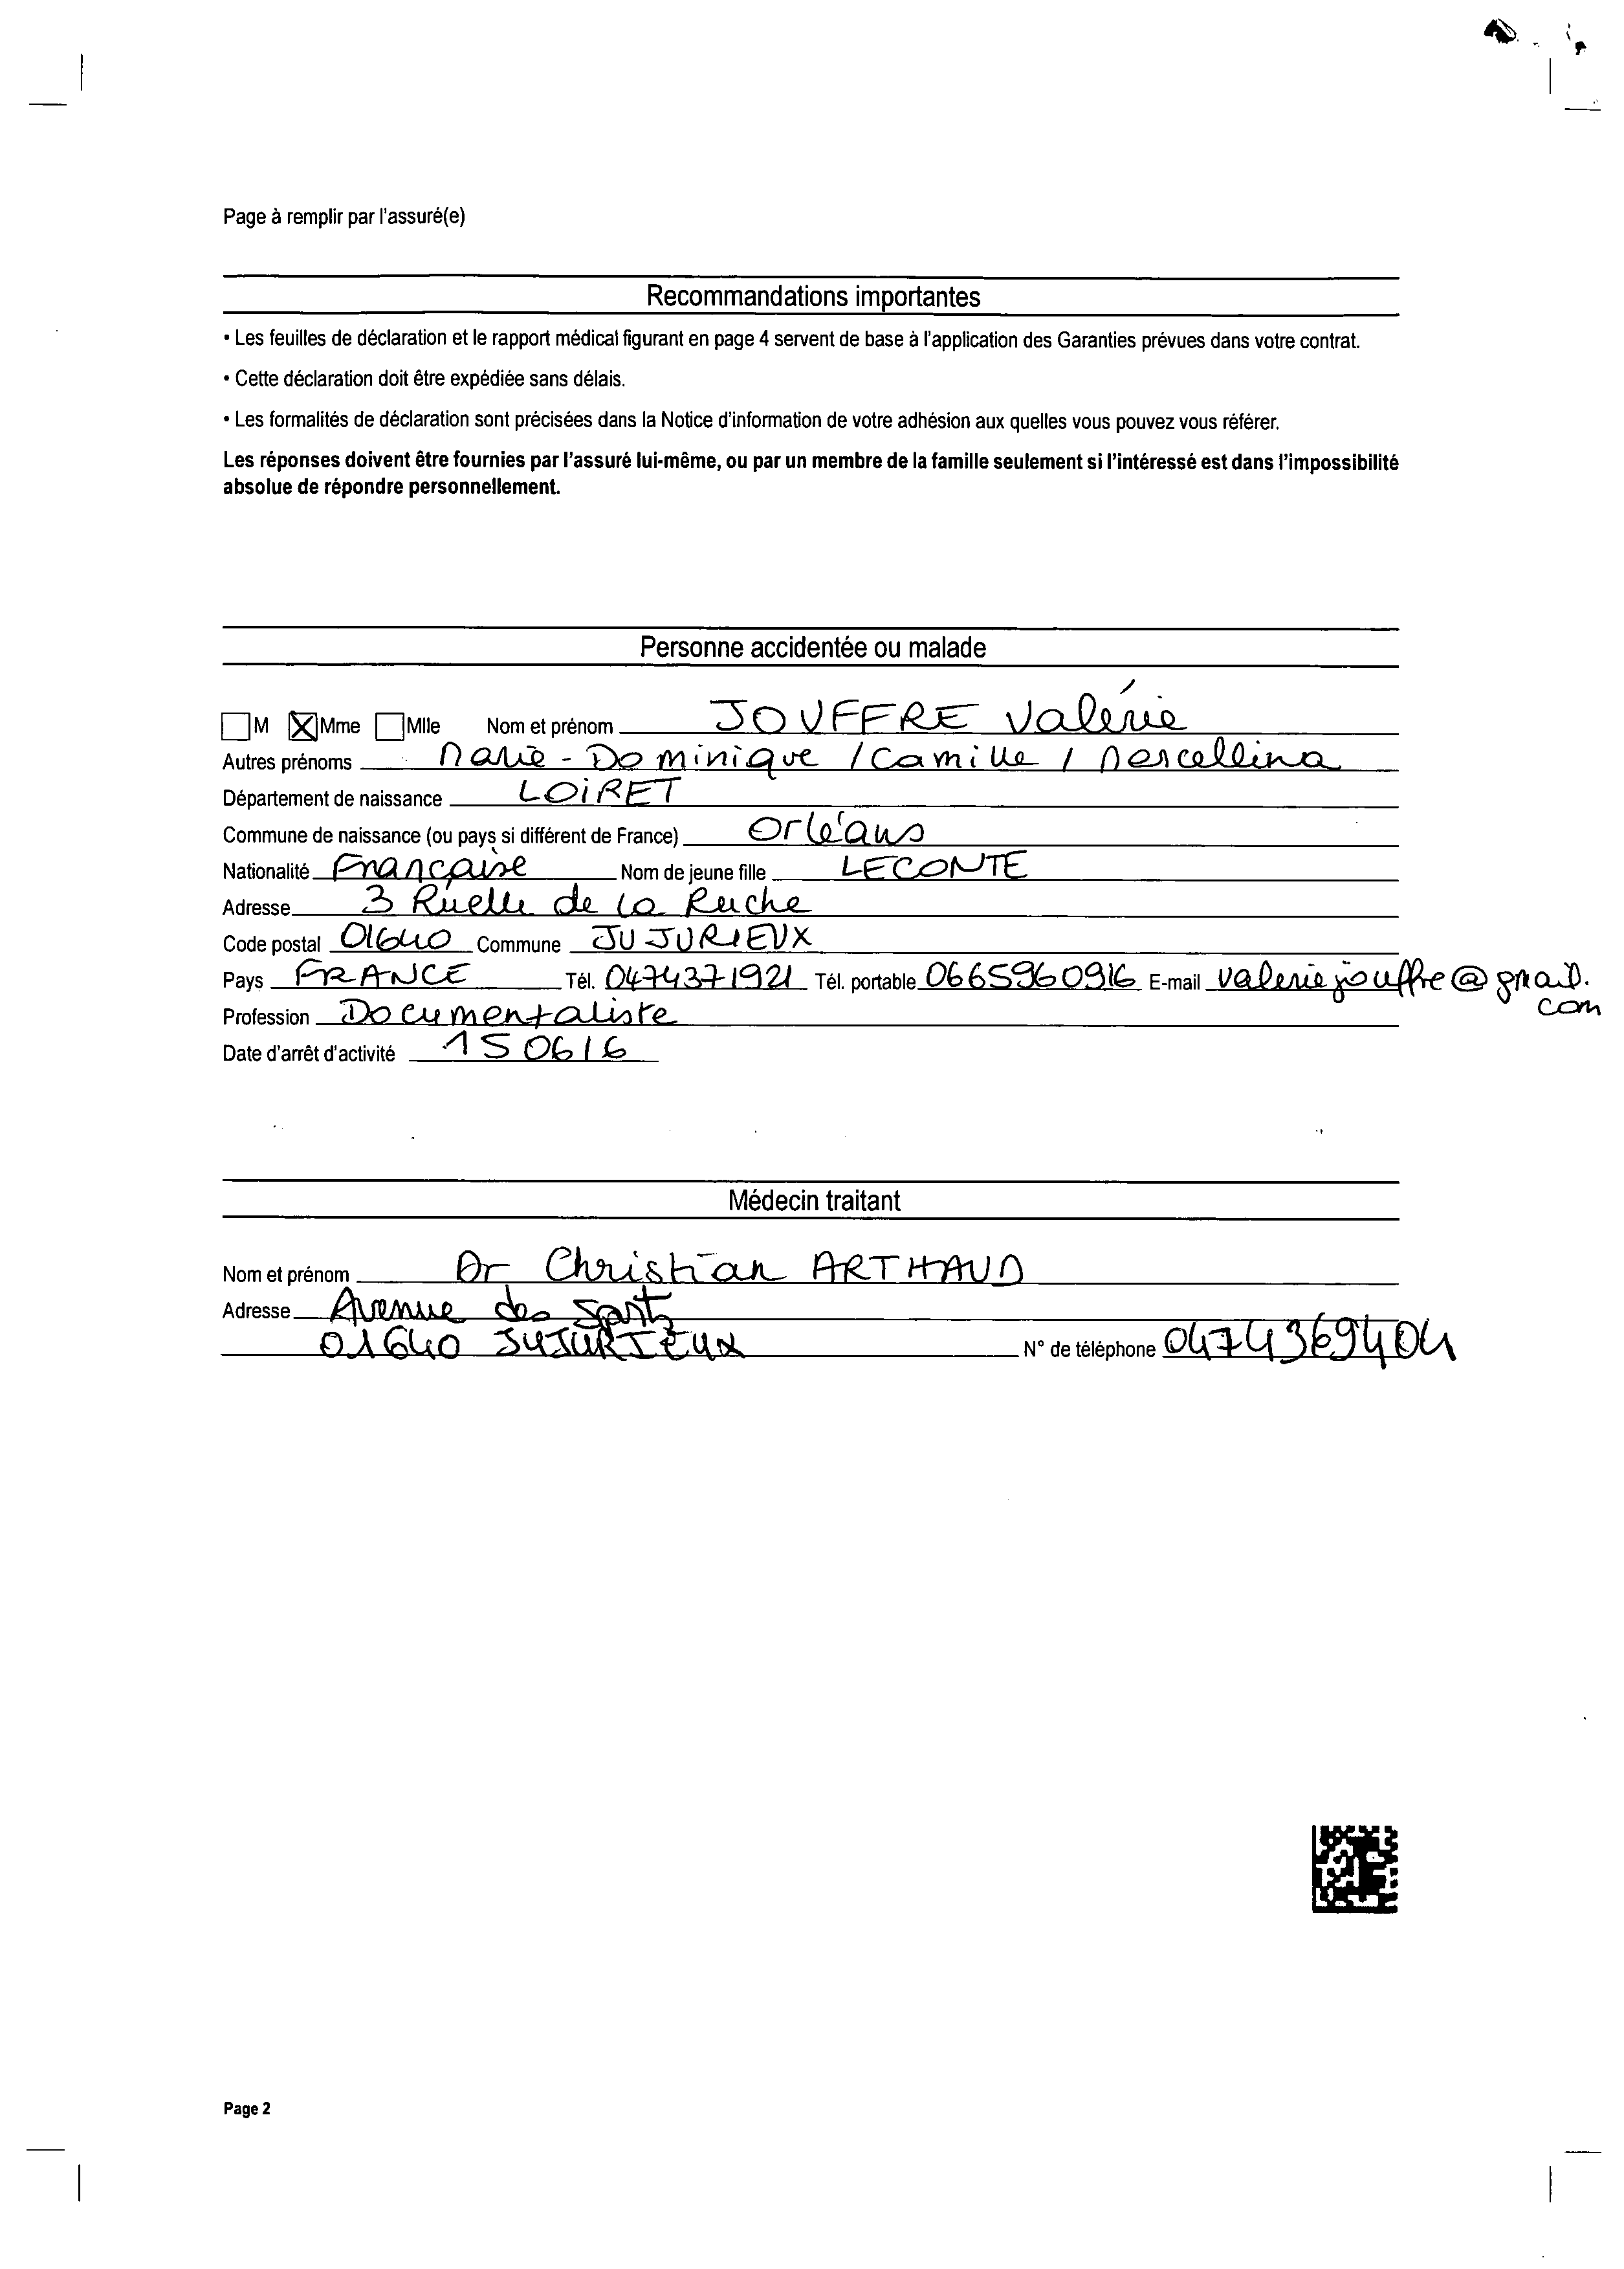 Page à remplir par l'assuré(e)
Recommandations importantes
• Les feuilles de déclaration et le rapport médical figurant en page 4 servent de base à l'application des Garanties prévues dans votre contrat.
• Cette déclaration doit être expédiée sans délais.
• Les formalités de déclaration sont précisées dans la Notice d'information de votre adhésion aux quelles vous pouvez vous référer.
Les réponses doivent être fournies par l'assuré lui-même, ou par un membre de la famille seulement si l'intéressé est dans l'impossibilité
absolue de répondre personnellement.
Personne accidentée ou malade
M Mme Mlle Nom et prénom JOUFFRE Valérie
Autres prénoms Marie-Dominique / Camille / Mercellina
Département de naissance LOIRET
Commune de naissance (ou pays si différent de France) Orléans
Nationalité Française Nom de jeune fille LECONTE
Adresse 3 Ruelle de la Ruche
Code postal 01640 Commune JUJURIEUX
Pays FRANCE Tél. 0474371921 Tél. portable 0665960916 E-mail valeriejouffre@gmail.
com
Profession Documentaliste
Date d'arrêt d'activité 150616
Médecin traitant
Nom et prénom Dr Christian ARTHAUD
Adresse Avenue des Sports
01640 JUJURIEUX N° de téléphone 0474369404
Page 2